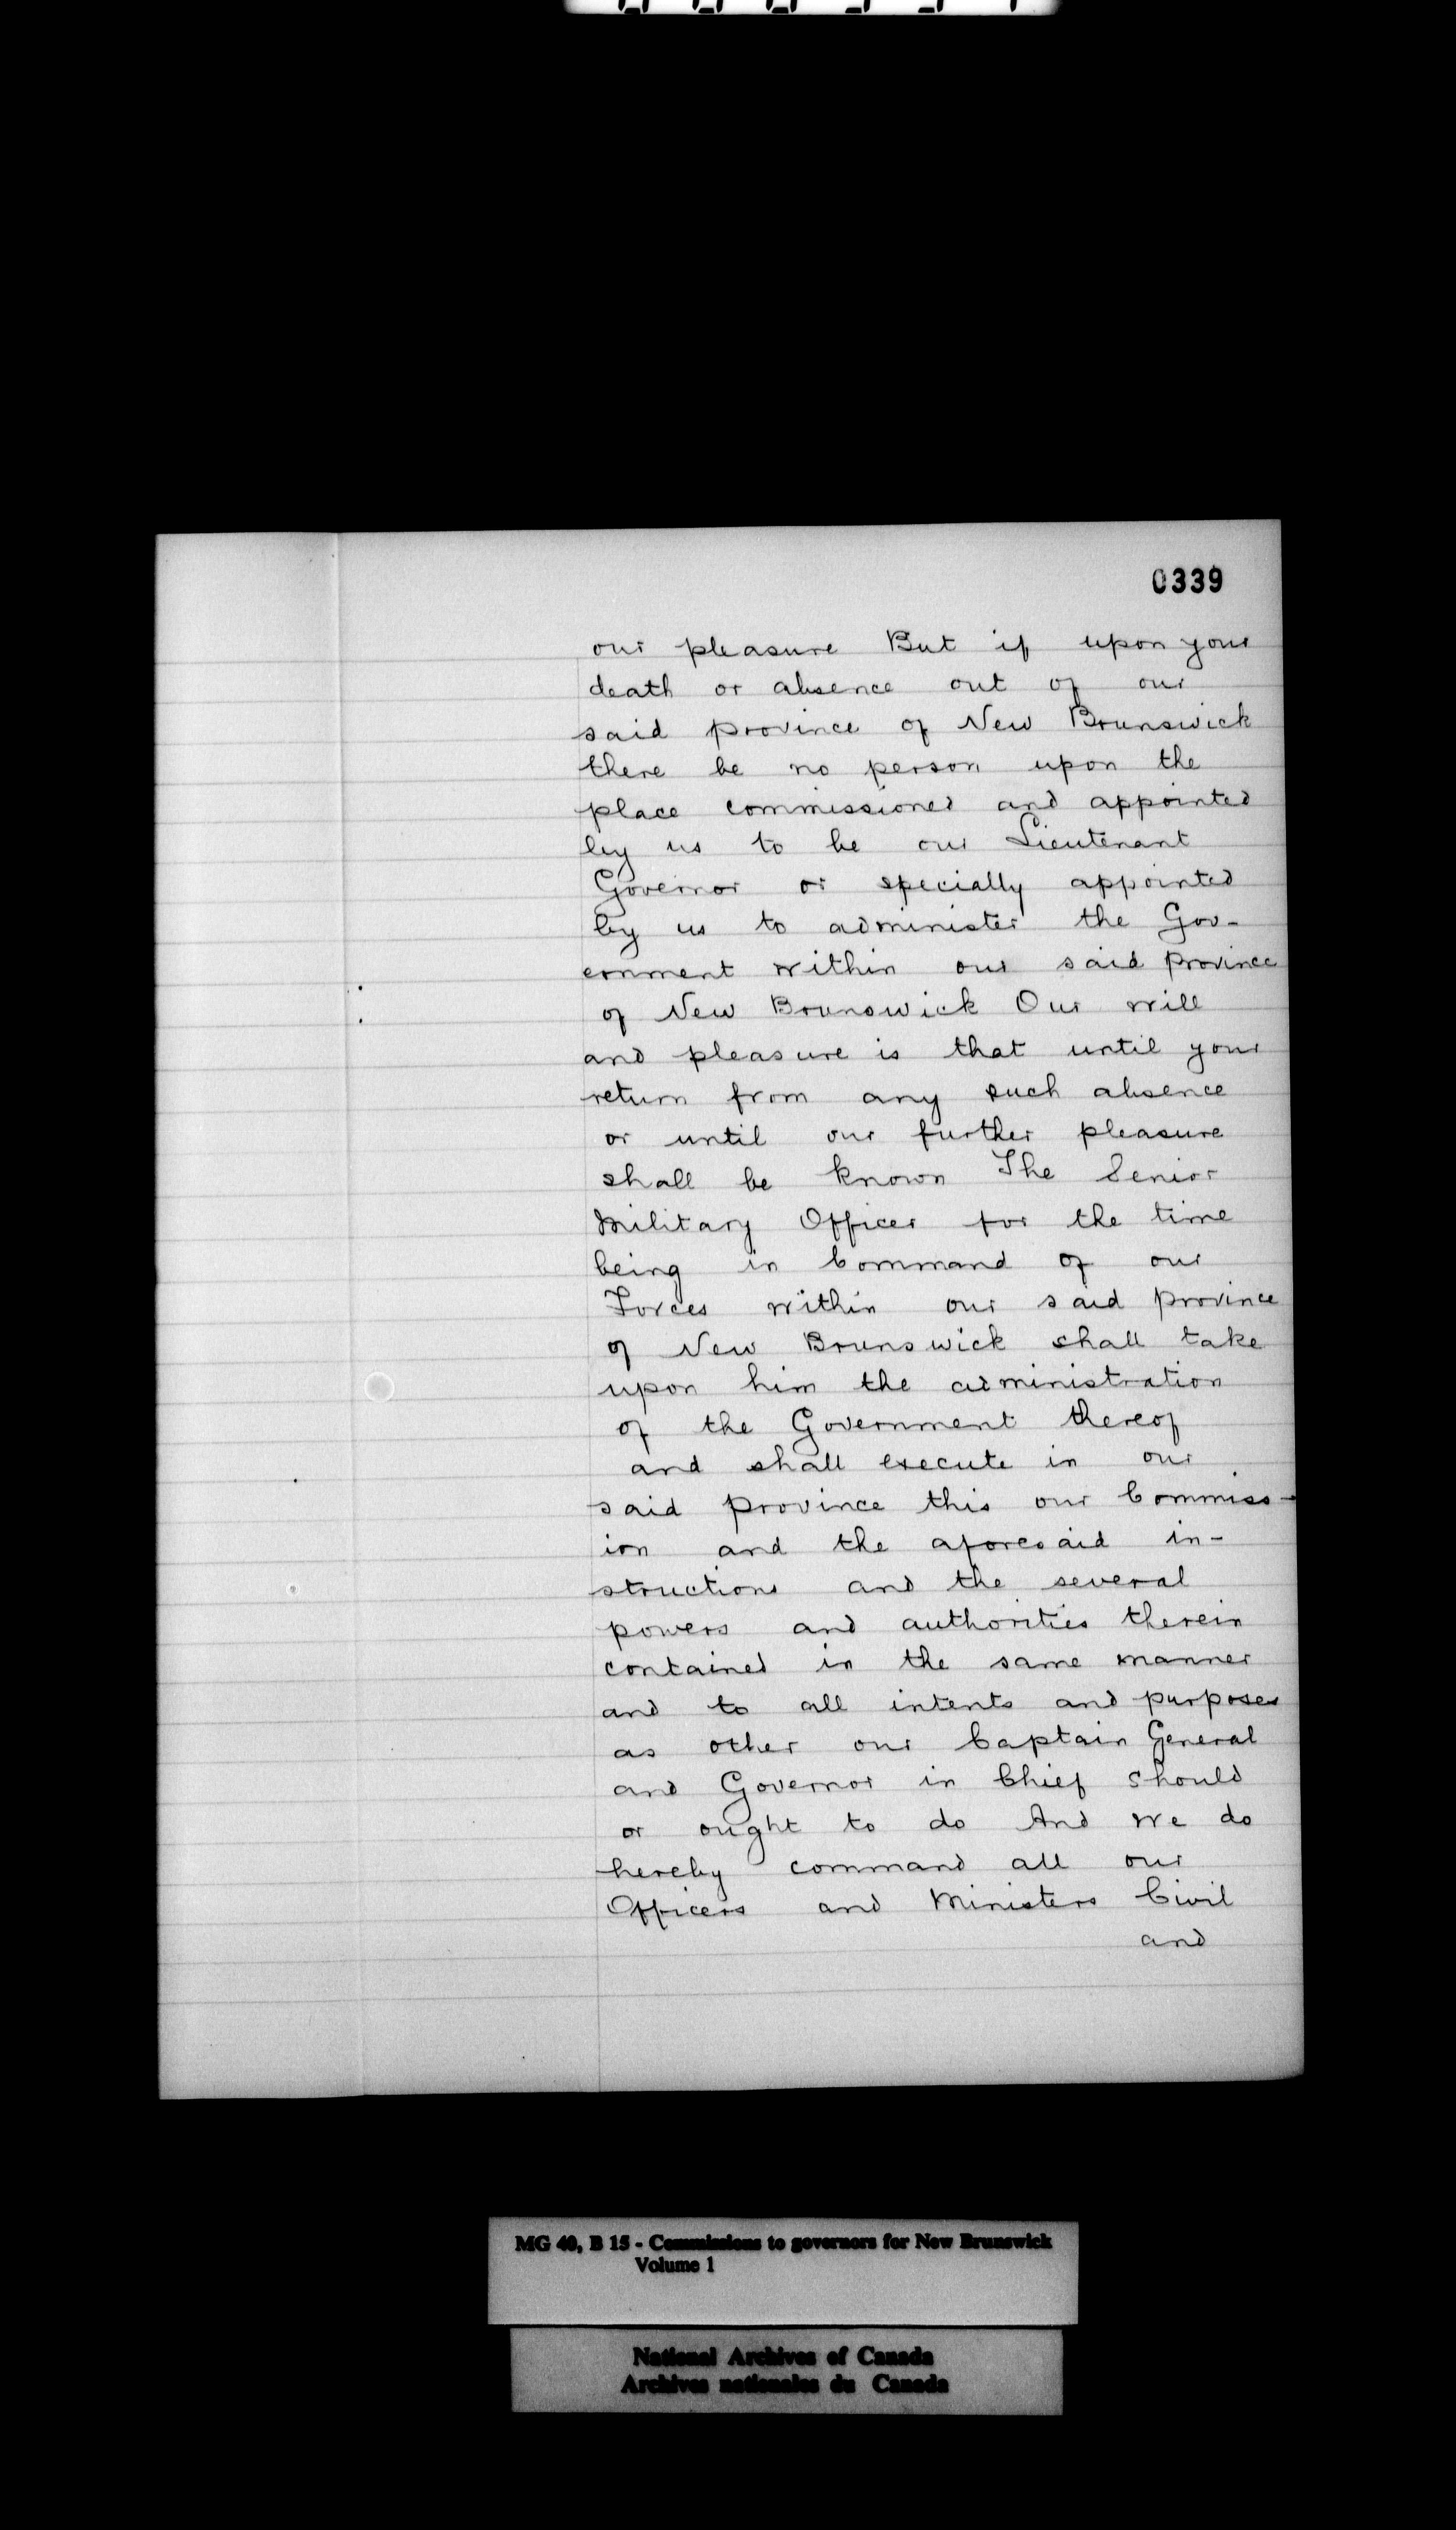 0339
our pleasure But if upon your
death or absence out of our
said province of New Brunswick
there be no person upon the
place commissioned and appointed
by us to be our Lieutenant
Governor or specially appointed
by us to administer the Gov-
ernment within our said province
of New Brunswick Our will
and pleasure is that until your
return from any such absence
or until our further pleasure
shall be known The Senior
Military Officer for the time
being in Command of our
Forces within our said province
of New Brunswick shall take
upon him the administration
of the Government thereof
and shall execute in our
said province this our Commiss-
ion and the aforesaid in-
structions and the several
powers and authorities therein
contained in the same manner
and to all intents and purposes
as other our Captain General
and Governor in Chief should
or ought to do And we do
hereby command all our
Officers and Ministers Civil
and
MG 40, B 15 - Commissions to governors for New Brunswick
Volume 1
National Archives of Canada
Archives nationales du Canada